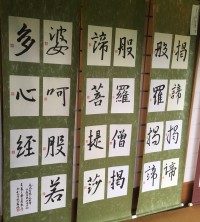 揭諦揭諦
般羅揭諦
般羅僧揭
諦菩提莎
婆呵般若
多心經